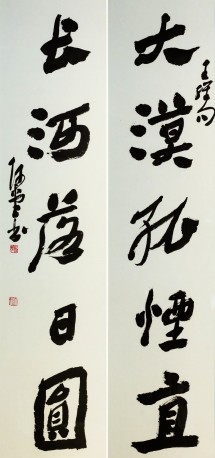 大漠孤煙直
王維句
長河落日圓